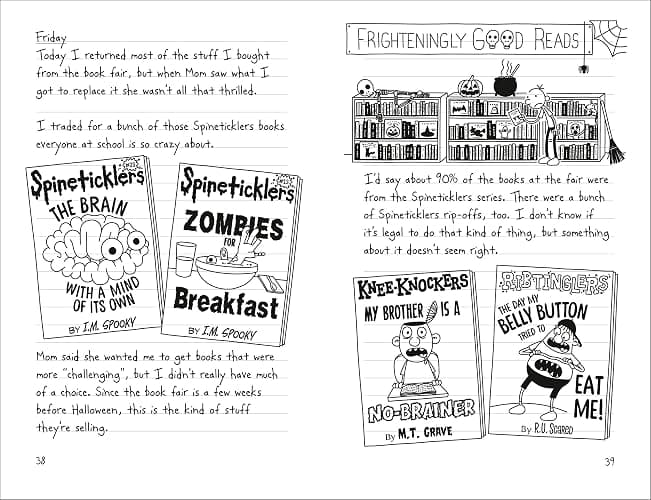 Friday
Today I returned most of the stuff I bought
from the book fair, but when Mom saw what I
got to replace it she wasn't all that thrilled.
I traded for a bunch of those Spineticklers books
everyone at school is so crazy about.
Spineticklers
THE BRAIN
WITH A MIND
OF ITS OWN
BY I.M. SPOOKY
Spineticklers
ZOMBIES
FOR
Breakfast
BY I.M. SPOOKY
Mom said she wanted me to get books that were
more "challenging", but I didn't really have much
of a choice. Since the book fair is a few weeks
before Halloween, this is the kind of stuff
they're selling.
38
FRIGHTENINGLY GOOD READS
I'd say about 90% of the books at the fair were
from the Spineticklers series. There were a bunch
of Spineticklers rip-offs, too. I don't know if
it's legal to do that kind of thing, but something
about it doesn't seem right.
KNEE-KNOCKERS
MY BROTHER IS A
NO-BRAINER
BY M.T. GRAVE
RIBTINGLERS
THE DAY MY
BELLY BUTTON
TRIED TO
EAT
ME!
BY R.U. Scared
39